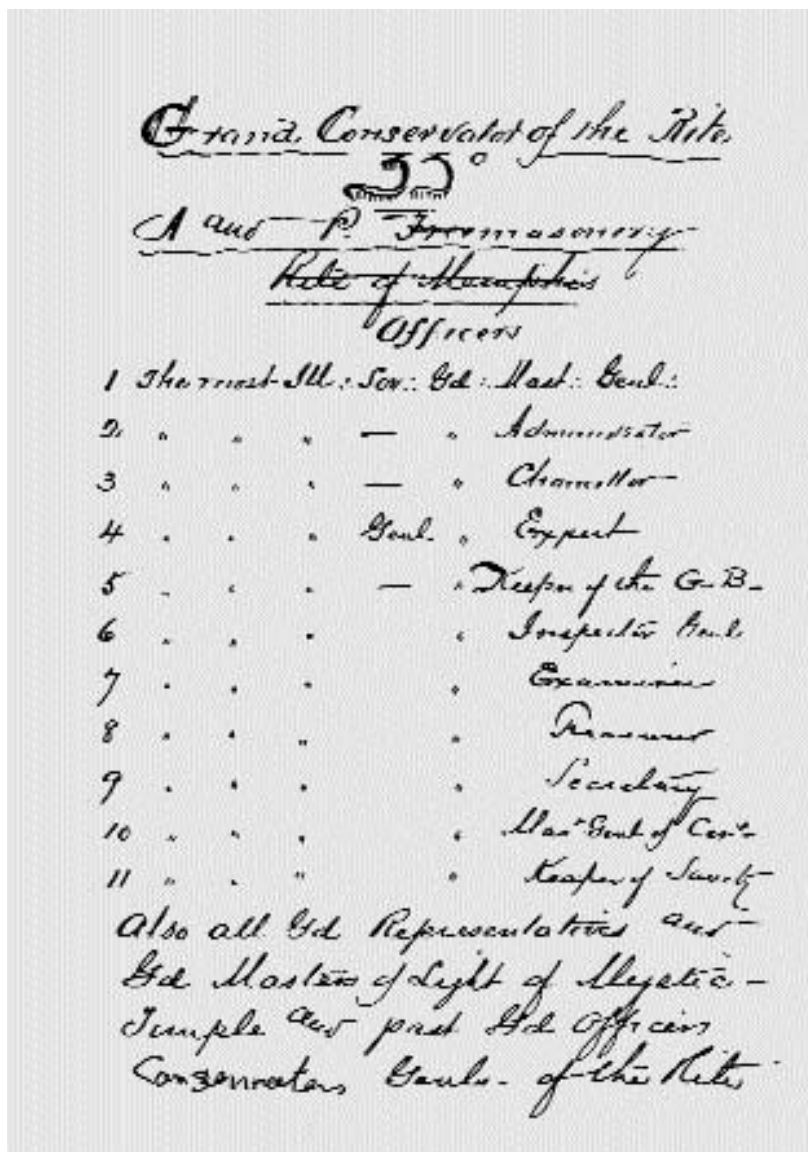 Grand Conservator of the Rite
33°
A and P. Freemasonery
Rite of Memphis
Officers
1 The most Ill∴ Sov∴ Gd∴ Mast∴ Genl∴
2 " " " — " Administrator
3 " " " — " Chancellor
4 " " " Genl. " Expert
5 " " " — " Keeper of the G-B-
6 " " " " Inspector Genl
7 " " " " Examiner
8 " " " " Treasurer
9 " " " " Secretary
10 " " " " Mas Genl of Cer
11 " " " " Keeper of
Also all Gd Representatives and
Gd Masters of Light of Mystic
Temple and past Gd Officers
Conservators Genls. of the Rite